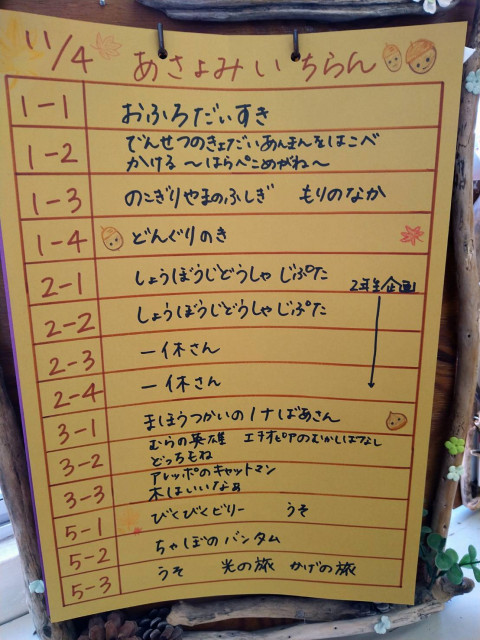 11/4 あさよみいちらん
1-1 おふろだいすき
1-2 でんせつのきょだいあんまんをはこべ
かける 〜はらぺこめがね〜
1-3 のこぎりやまのふしぎ もりのなか
1-4 どんぐりのき
2-1 しょうぼうじどうしゃ じぷた
2年生企画
2-2 しょうぼうじどうしゃ じぷた
2-3 一休さん
2-4 一休さん
3-1 まほうつかいのナナばあさん
3-2 むらの英雄 エチオピアのむかしはなし
どっちもね
3-3 アレッポのキャットマン
木はいいなぁ
5-1 びくびくビリー うそ
5-2 ちゃぼのバンタム
5-3 うそ 光の旅 かげの旅